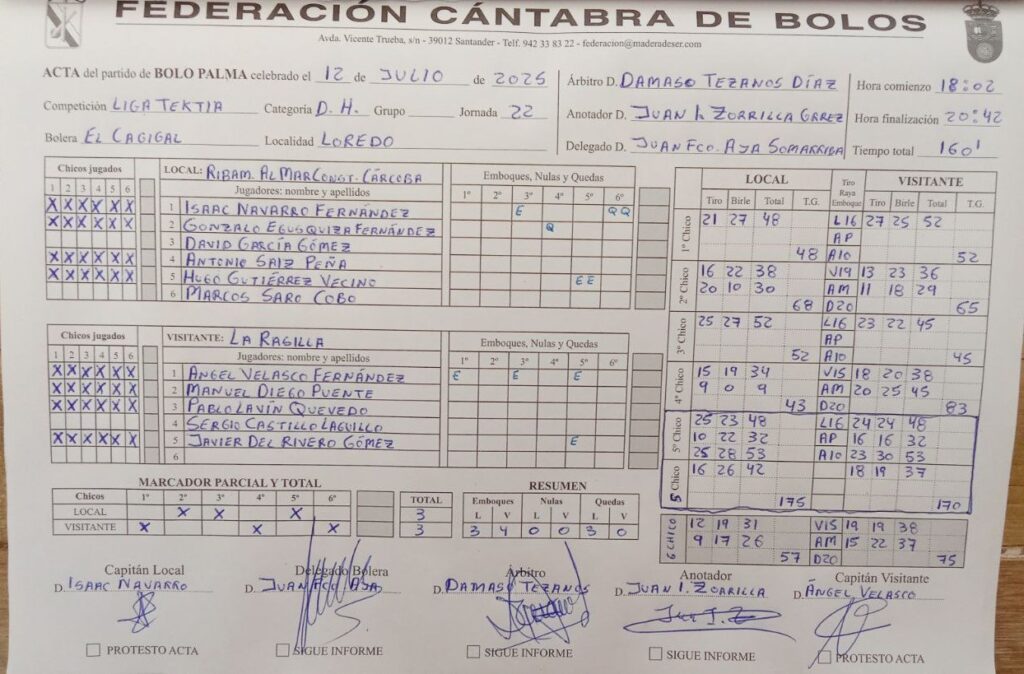 FEDERACIÓN CÁNTABRA DE BOLOS
Avda. Vicente Trueba, s/n - 39012 Santander - Telf. 942 33 83 22 - federacion@maderadeser.com
ACTA del partido de BOLO PALMA celebrado el 12 de JULIO de 2025
Competición LIGA TEKTIA Categoria D. H. Grupo Jornada 22
Bolera EL CAGIGAL Localidad LOREDO
Árbitro D. DAMASO TEZANOS DÍAZ
Anotador D. JUAN I. ZORRILLA GRREZ
Delegado D. JUAN FCO. AJA SOMARRIBA
Hora comienzo 18:02
Hora finalización 20:42
Tiempo total 160'
Chicos jugados LOCAL: RIBAM. ALMAR CONST. CÁRCOBA Emboques, Nulas y Quedas
1 2 3 4 5 6 Jugadores: nombre y apellidos 1º 2º 3º 4º 5º 6º
X X X X X X 1 ISAAC NAVARRO FERNÁNDEZ E Q Q
X X X X X X 2 GONZALO EGUSQUIZA FERNÁNDEZ Q
3 DAVID GARCÍA GÓMEZ
X X X X X X 4 ANTONIO SAIZ PEÑA
X X X X X X 5 HUGO GUTIÉRREZ VECINO E E
6 MARCOS SARO COBO
Chicos jugados VISITANTE: LA RAGILLA Emboques, Nulas y Quedas
1 2 3 4 5 6 Jugadores: nombre y apellidos 1º 2º 3º 4º 5º 6º
X X X X X X 1 ÁNGEL VELASCO FERNÁNDEZ E E E
X X X X X X 2 MANUEL DIEGO PUENTE
X X X X X X 3 PABLO LAVÍN QUEVEDO
4 SERGIO CASTILLO LAGUILLO
X X X X X X 5 JAVIER DEL RIVERO GÓMEZ E
6
MARCADOR PARCIAL Y TOTAL
Chicos 1º 2º 3º 4º 5º 6º TOTAL
LOCAL X X X 3
VISITANTE X X X 3
RESUMEN
Emboques Nulas Quedas
L V L V L V
3 4 0 0 3 0
LOCAL Tiro Raya Emboque VISITANTE
Tiro Birle Total T.G. Tiro Birle Total T.G.
1º Chico 21 27 48 L16 27 25 52
AP
48 A10 52
2º Chico 16 22 38 V19 13 23 36
20 10 30 AM 11 18 29
68 D20 65
3º Chico 25 27 52 L16 23 22 45
AP
52 A10 45
4º Chico 15 19 34 V15 18 20 38
9 0 9 AM 20 25 45
43 D20 83
5º Chico 25 23 48 L16 24 24 48
10 22 32 AP 16 16 32
25 28 53 A10 23 30 53
5 Chico 16 26 42 18 19 37
175 170
6 CHICO 12 19 31 V15 19 19 38
9 17 26 AM 15 22 37
57 D20 75
Capitán Local
D. ISAAC NAVARRO
Delegado Bolera
D. JUAN FCO AJA
Árbitro
D. DAMASO TEZANOS
Anotador
D. JUAN I. ZORRILLA
Capitán Visitante
D. ÁNGEL VELASCO
PROTESTO ACTA
SIGUE INFORME
SIGUE INFORME
SIGUE INFORME
PROTESTO ACTA